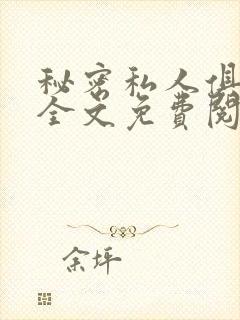 秘密私人俱
全文免费阅
余坪